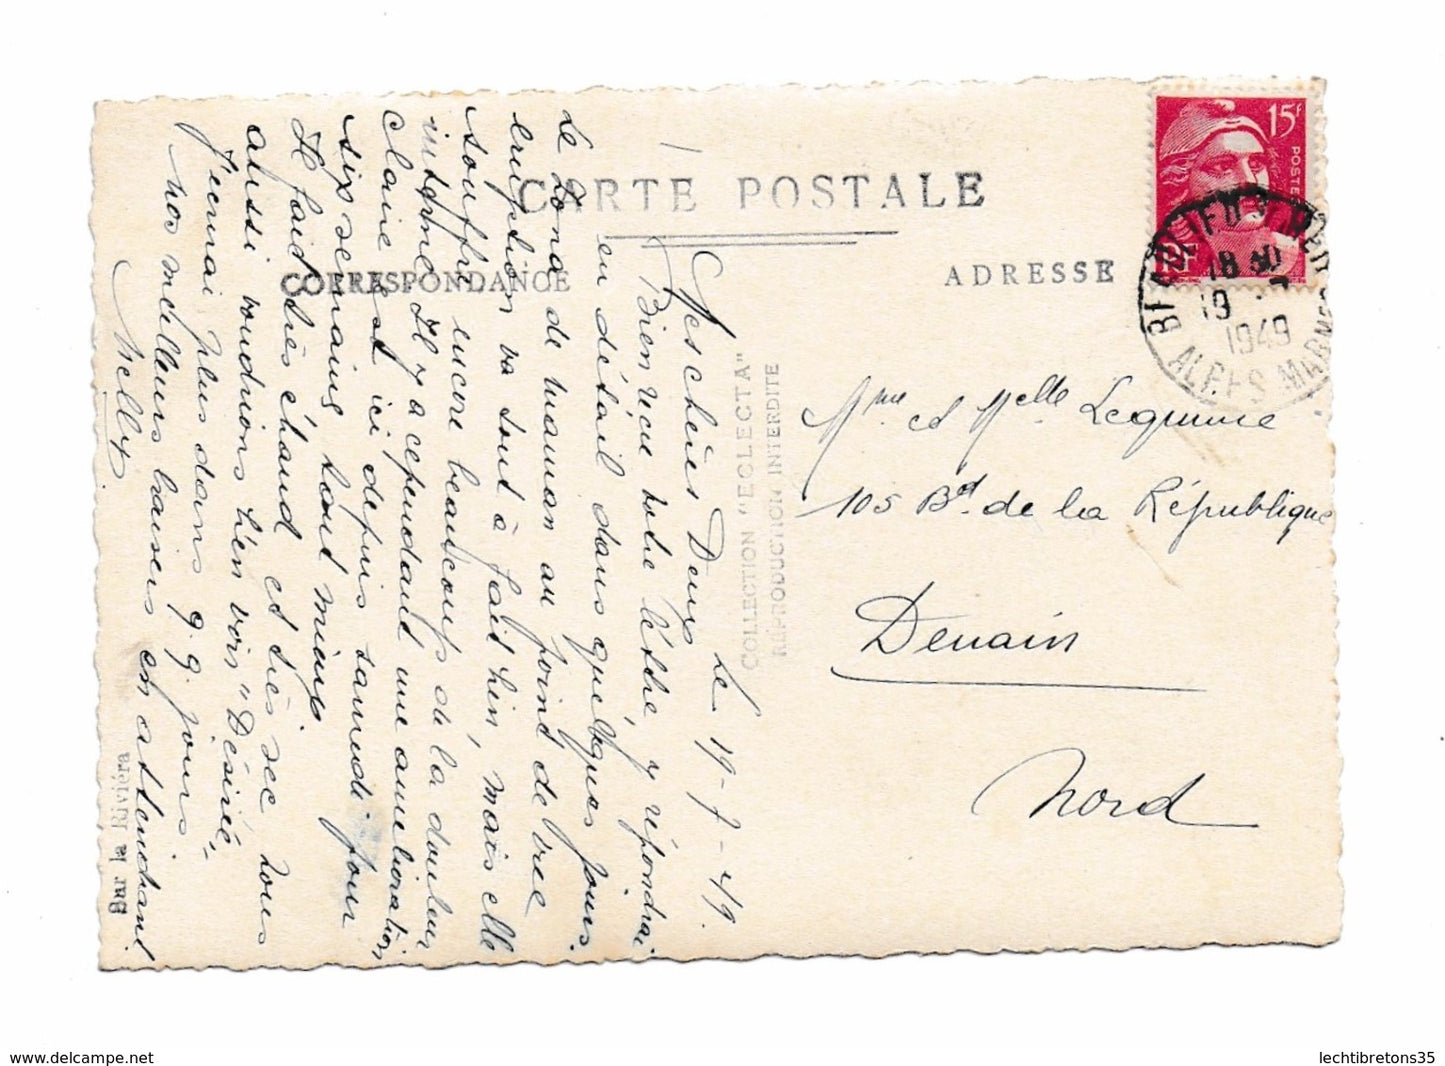 CARTE POSTALE
CORRESPONDANCE
ADRESSE
15F
POSTES
BEAULIEU S MER
18 30
19 -7
1949
ALPES MARMES
COLLECTION "ECLECTA"
REPRODUCTION INTERDITE
Sur la Riviéra
Le 19-7-49.
Mes chères Deux
Bien reçu votre lettre, y répondrai
en détail dans quelques jours.
Le Zona de maman au point de vue
éruption va tout à fait bien, mais elle
souffre encore beaucoup de la douleur
interne Il y a cependant une amélioration
Claire est ici depuis samedi pour
six semaines tout mieux
Il fait très chaud et très sec nous
aussi voudrions l'en voir "Désirée"
J'écrirai plus dans q.q. jours
nos meilleurs baisers en attendant.
Nelly
Mme et Melle Legrume
105 Bd. de la République
Denain
Nord
delcampe.net
lechtibretons35